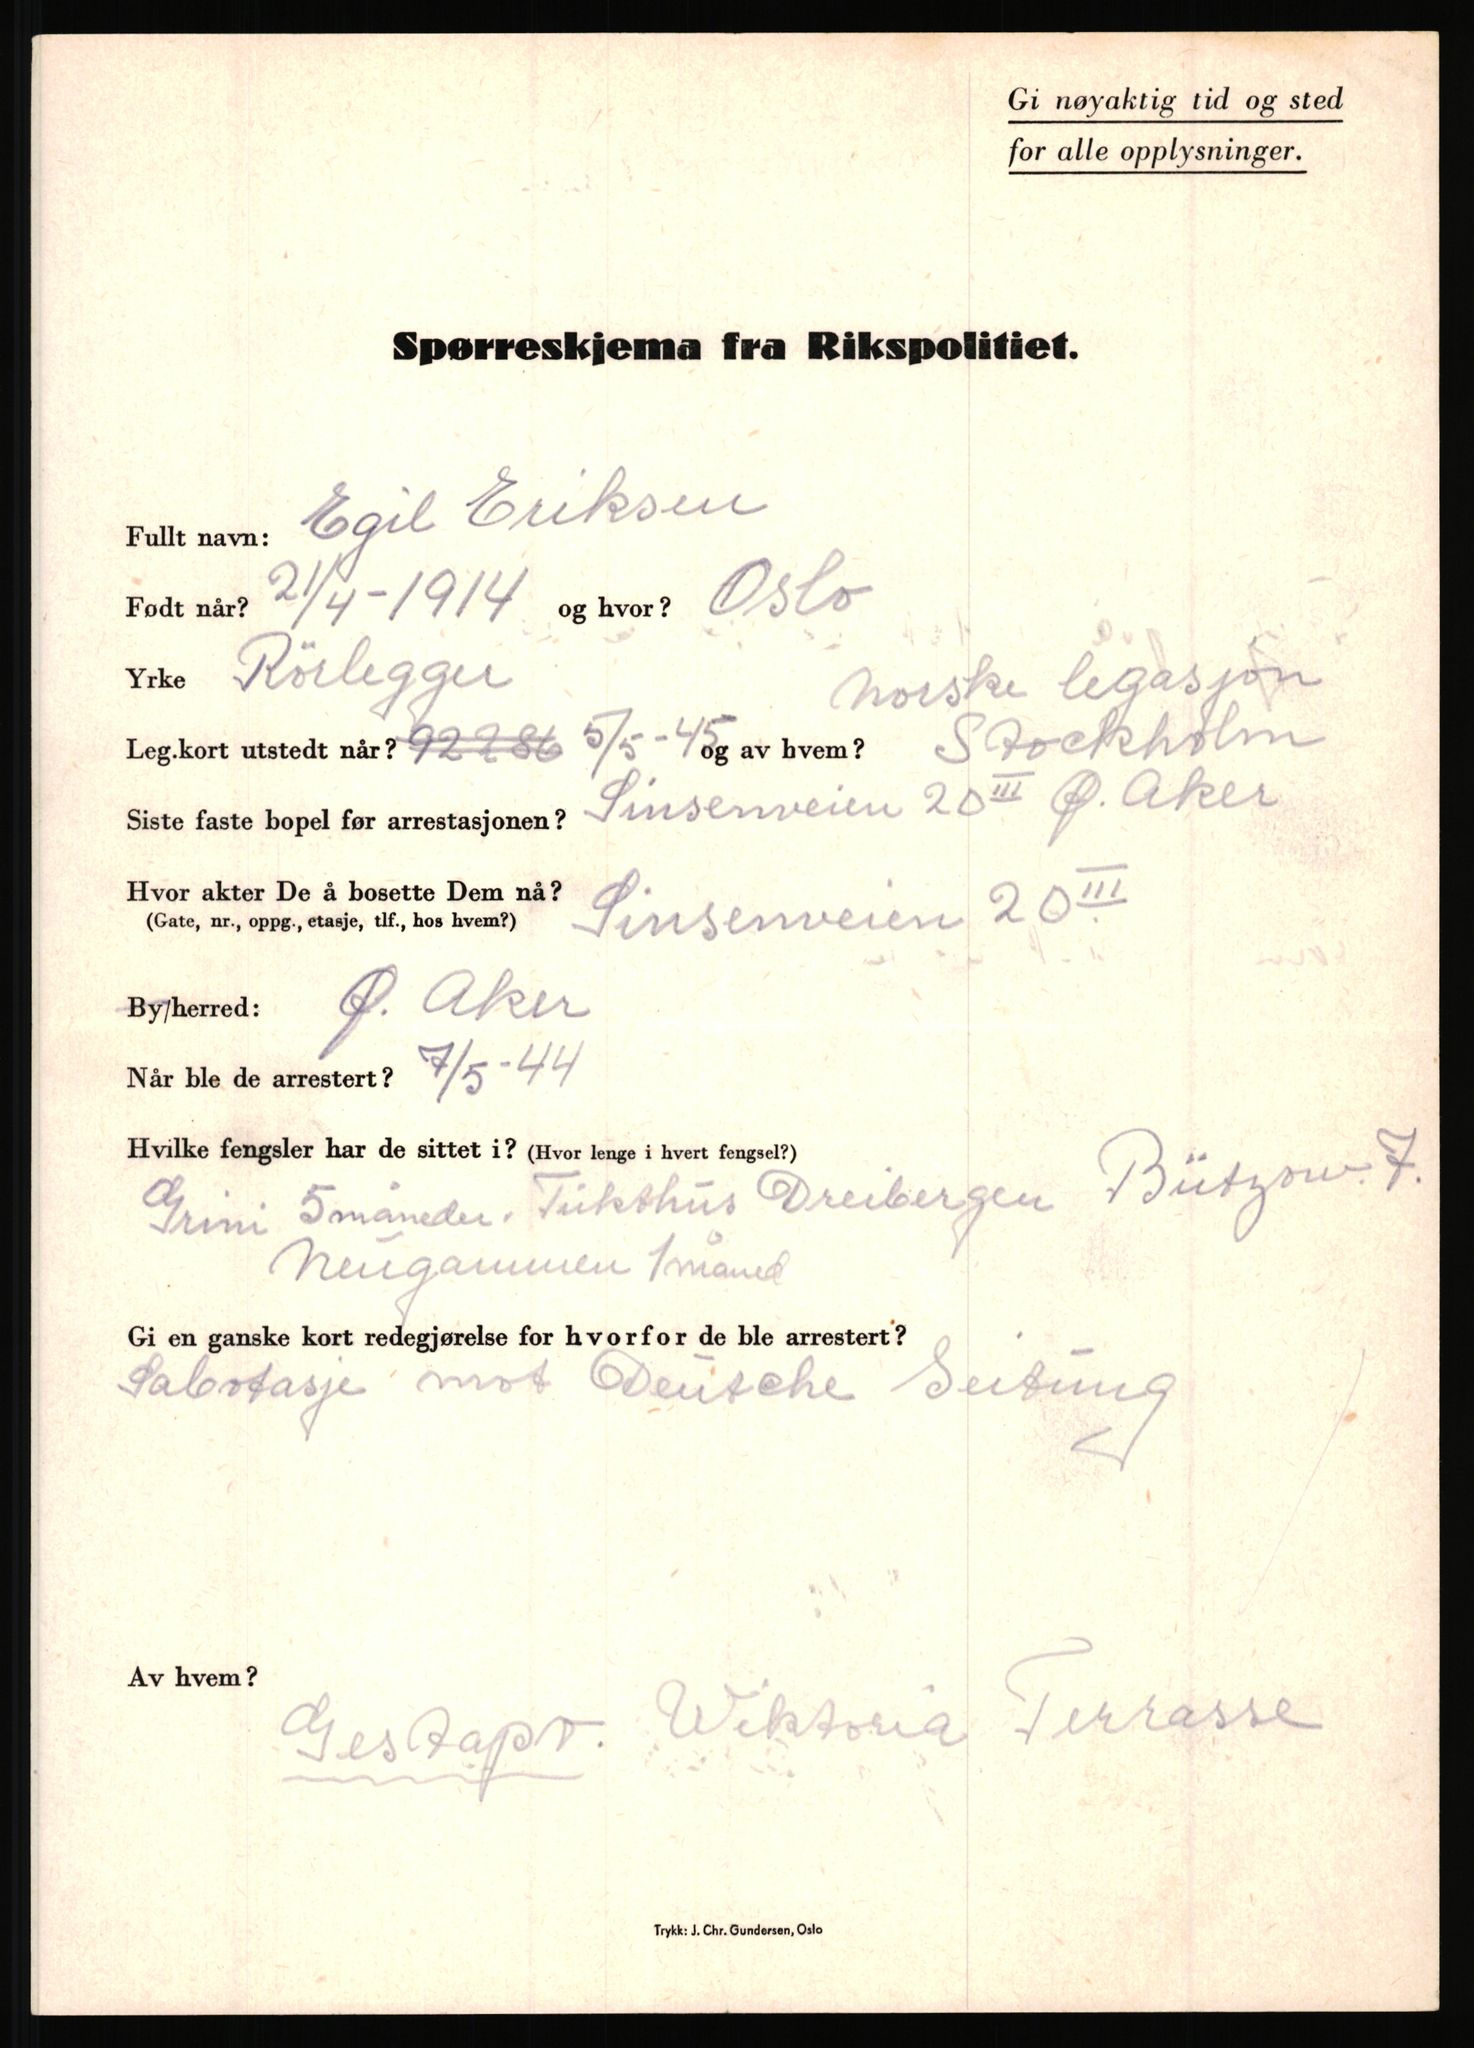 Gi nøyaktig tid og sted
for alle opplysninger.
Spørreskjema fra Rikspolitiet.
Fullt navn: Egil Eriksen
Født når? 21/4-1914 og hvor? Oslo
Yrke Rörlegger norske legasjon
Leg.kort utstedt når? 92286 5/5-45 og av hvem? Stockholm
Siste faste bopel før arrestasjonen? Sinsenveien 20 III Ø. Aker
Hvor akter De å bosette Dem nå? Sinsenveien 20 III
(Gate, nr., oppg., etasje, tlf., hos hvem?)
By/herred: Ø. Aker
Når ble de arrestert? 7/5-44
Hvilke fengsler har de sittet i? (Hvor lenge i hvert fengsel?)
Grini 5 måneder. Tukthus Dreibergen Bützow. 7.
Neugammen 1 måned
Gi en ganske kort redegjørelse for hvorfor de ble arrestert?
Sabotasje mot Deutsche Seitung
Av hvem?
Gestapo. Wiktoria Terrasse
Trykk: J. Chr. Gundersen, Oslo